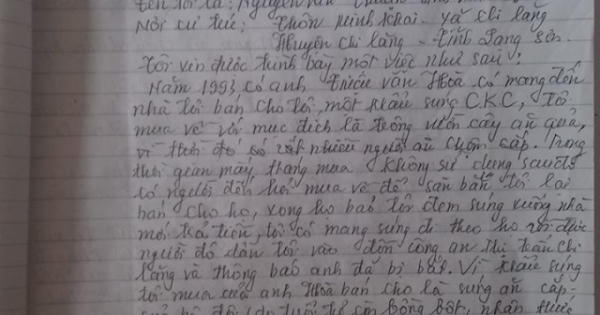 Tên tôi là: Nguyễn Văn
Nơi cư trú: Thôn Minh Khai - xã Chi Lăng
Huyện Chi Lăng - tỉnh Lạng Sơn.
Tôi xin được trình bày một việc như sau:
Năm 1993 có anh Triệu Văn Hoà có mang đến
nhà tôi bán cho tôi, một khẩu súng C.K.C, Tô
mua về với mục đích là trông vườn cây ăn quả,
vì thời đó có rất nhiều người ăn trộm cắp. Trong
thời gian mấy tháng mua không sử dụng sau đó
có người đến hỏi mua về để săn bắn tôi lại
bán cho họ, xong họ bảo tôi đem súng xuống nhà
mới trả tiền, tôi có mang súng đi theo họ và được
người đó dẫn tôi vào đồn công an thị trấn Chi
Lăng và thông báo anh đã bị bắt. Vì khẩu súng
tôi mua của anh Hoà bán cho là súng ăn cắp
bộ đội, do tuổi trẻ còn bồng bột, nhận thức